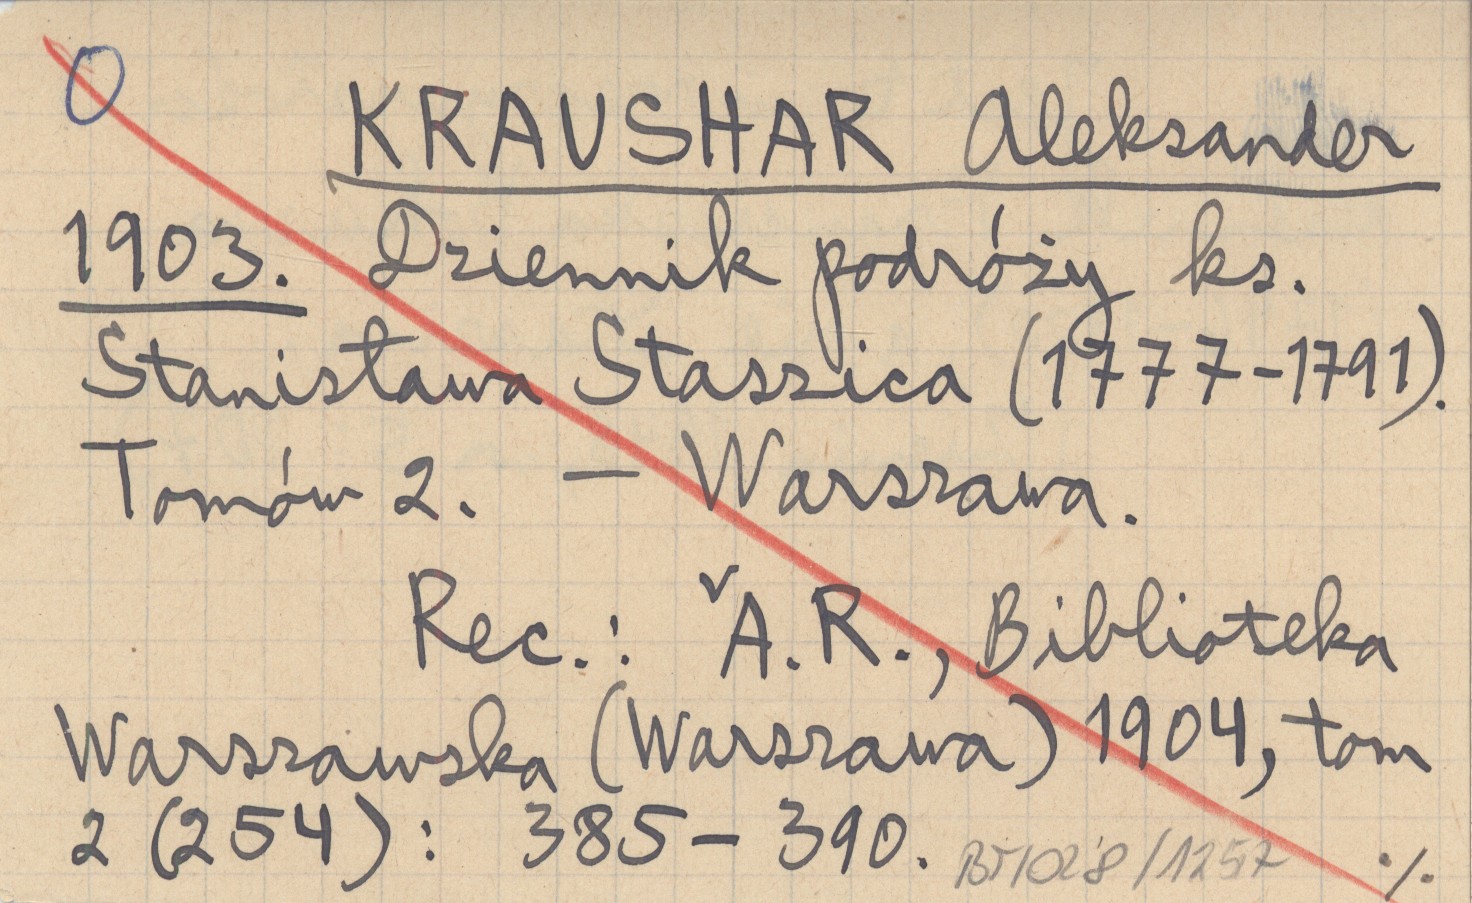 0
KRAUSHAR Aleksander
1903. Dziennik podróży ks.
Stanisława Staszica (1777-1791).
Tomów 2. — Warszawa.
Rec.: ˇA.R., Biblioteka
Warszawska (Warszawa) 1904, tom
2 (254): 385-390.
/1257
·/.